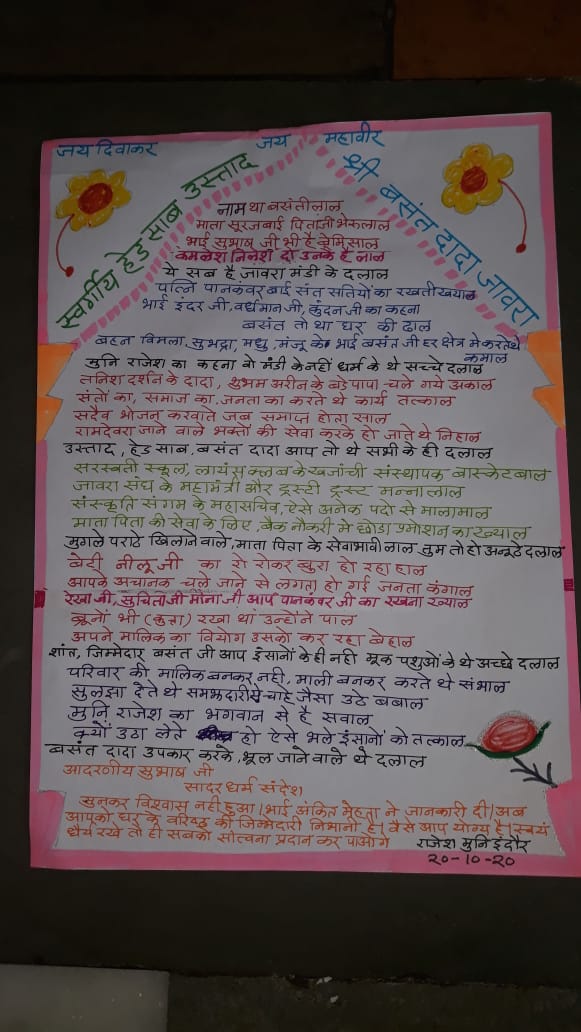 जय दिवाकर जय महावीर
स्वर्गीय हेड साब उस्ताद
श्री बसंत दादा जावरा
नाम था बसंतीलाल
माता सूरजबाई पिताजी भेरुलाल
भाई सुभाष जी भी है बेमिसाल
कमलेश निलेश दो उनके है लाल
ये सब है जावरा मंडी के दलाल
पत्नि पानकंवर बाई संत सतियों का रखती खयाल
भाई इंदर जी, वर्धमान जी, कुंदन जी का कहना
बसंत तो था घर की ढाल
बहन विमला, सुभद्रा, मधु, मंजू के भाई बसंत जी हर क्षेत्र मे करते थे
कमाल
मुनि राजेश का कहना वो मंडी के नहीं धर्म के थे सच्चे दलाल
तनिश दर्शन के दादा, शुभम अरीन के बड़े पापा चले गये अकाल
संतों का, समाज का, जनता का करते थे कार्य तत्काल
सदैव भोजन करवाते जब समाप्त होता साल
रामदेवरा जाने वाले भक्तों की सेवा करके हो जाते थे निहाल
उस्ताद, हेड साब, बसंत दादा आप तो थे सभी के ही दलाल
सरस्वती स्कूल, लायंस क्लब के खजांची संस्थापक बास्केटबाल
जावरा संघ के महामंत्री और ट्रस्टी ट्रस्ट मन्नालाल
संस्कृति संगम के महासचिव, ऐसे अनेक पदो से मालामाल
माता पिता की सेवा के लिए, बैंक नौकरी मे छोडा प्रमोशन का ख्याल
मुगले पराटे खिलाने वाले, माता पिता के सेवाभावी लाल तुम तो हो अनूठे दलाल
बेटी नीलू जी का रो रोकर बुरा हो रहा हाल
आपके अचानक चले जाने से लगता हो गई जनता कंगाल
रेखा जी, सुचिता जी मोना जी आप पानकंवर जी का रखना ख्याल
ब्रूनों भी (कुत्ता) रखा था उन्होंने पाल
अपने मालिक का वियोग उसको कर रहा बेहाल
शांत, जिम्मेदार बसंत जी आप इंसानों के ही नही मूक पशुओं के थे अच्छे दलाल
परिवार की मालिक बनकर नही, माली बनकर करते थे संभाल
सुलझा देते थे समझदारी से चाहे जैसा उठे बबाल
मुनि राजेश का भगवान से है सवाल
क्यों उठा लेते हो ऐसे भले इंसानों को तत्काल
बसंत दादा उपकार करके, भूल जाने वाले थे दलाल
आदरणीय सुभाष जी
सादर धर्म संदेश
सुनकर विश्वास नही हुआ। भाई अंकित मेहता ने जानकारी दी। अब
आपको घर के वरिष्ठ की जिम्मेदारी निभानी है। वैसे आप योग्य है। स्वयं
धैर्य रखे तो ही सबको सांत्वना प्रदान कर पाओगे
राजेश मुनि इंदौर
२०-१०-२०